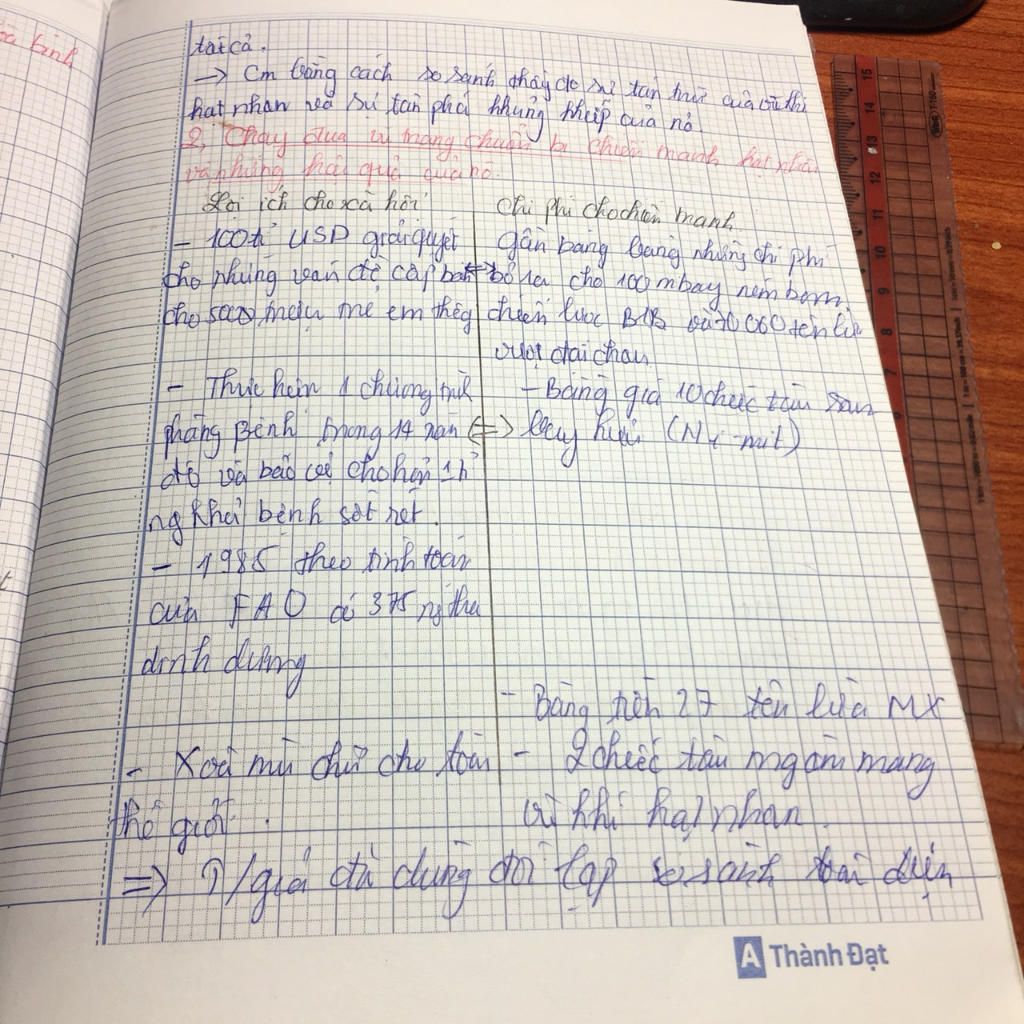 oà bình
tất cả.
→ Cm bằng cách so sánh thấy đc sự tàn trữ của vũ khí
hạt nhân và sự tàn phá khủng khiếp của nó.
2, Chạy đua vũ trang chuẩn bị chiến tranh hạt nhân
và những hậu quả của nó.
Lợi ích cho xã hội
chi phí cho chiến tranh
- 100 tỉ USD giải quyết
cho những vấn đề cấp bách
cho 500 triệu trẻ em
gần bằng bằng những chi phí
⇔ bỏ ra cho 100 m bay ném bom
chiến lược B1B và 7000 tên lửa
vượt đại châu
- Thực hiện 1 chương trình
phòng bệnh trong 14 năm
đó và bảo vệ cho hơn 1 tỉ
ng khỏi bệnh sốt rét.
- Bằng giá 10 chiếc tàu sân
(=) bay kiểu (Ni-mit)
- 1985 theo tính toán
của FAO có 375 ng thiếu
dinh dưỡng
- Bằng nên 27 tên lửa MX
- Xoá mù chữ cho toàn
thế giới.
- 2 chiếc tàu ngầm mang
vũ khí hạt nhân.
=> T/giả đã dùng đối lập so sánh toàn diện
A Thành Đạt